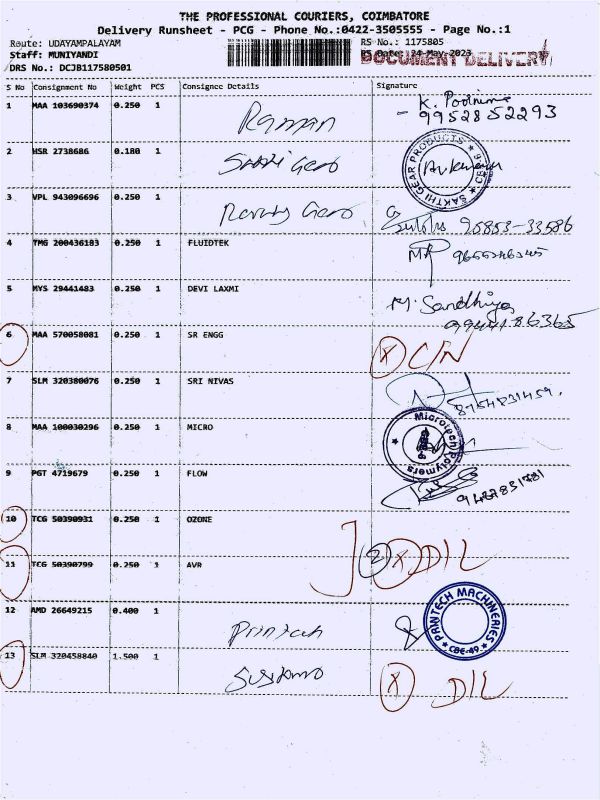 THE PROFESSIONAL COURIERS, COIMBATORE
Delivery Runsheet - PCG - Phone No.:0422-3505555 - Page No.:1
Route: UDAYAMPALAYAM RS No.: 1175805
Staff: MUNIYANDI RS Date: 24-May-2023 DOCUMENT DELIVERY
DRS No.: DCJB117580501
S No Consignment No Weight PCS Consignee Details Signature
1 MAA 103690374 0.250 1 Raman K. Poornima
9952852293
2 HSR 2738686 0.180 1 Sakthi Gear SAKTHI GEAR PRODUCTS
3 VPL 943096696 0.250 1 Gear 95853-33586
4 TMG 200436183 0.250 1 FLUIDTEK
5 MYS 29441483 0.250 1 DEVI LAXMI M. Sandhiya
6 MAA 570058081 0.250 1 SR ENGG X C/N
7 SLM 320380076 0.250 1 SRI NIVAS 8754831459.
8 MAA 100030296 0.250 1 MICRO Microtech Polymers
9 PGT 4719679 0.250 1 FLOW
10 TCG 50390931 0.250 1 OZONE
11 TCG 50390799 0.250 1 AVR 2 X D/L
12 AMD 26649215 0.400 1 Printech PRINTECH MACHINERIES CBE-49
13 SLM 320458840 1.500 1 X D/L